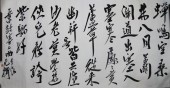 蟬鳴空桑
林八月蕭
關道出塞入
塞寒處處黃
蘆草從來
幽并客皆共
塵沙老莫學
遊俠兒矜誇
紫騮好